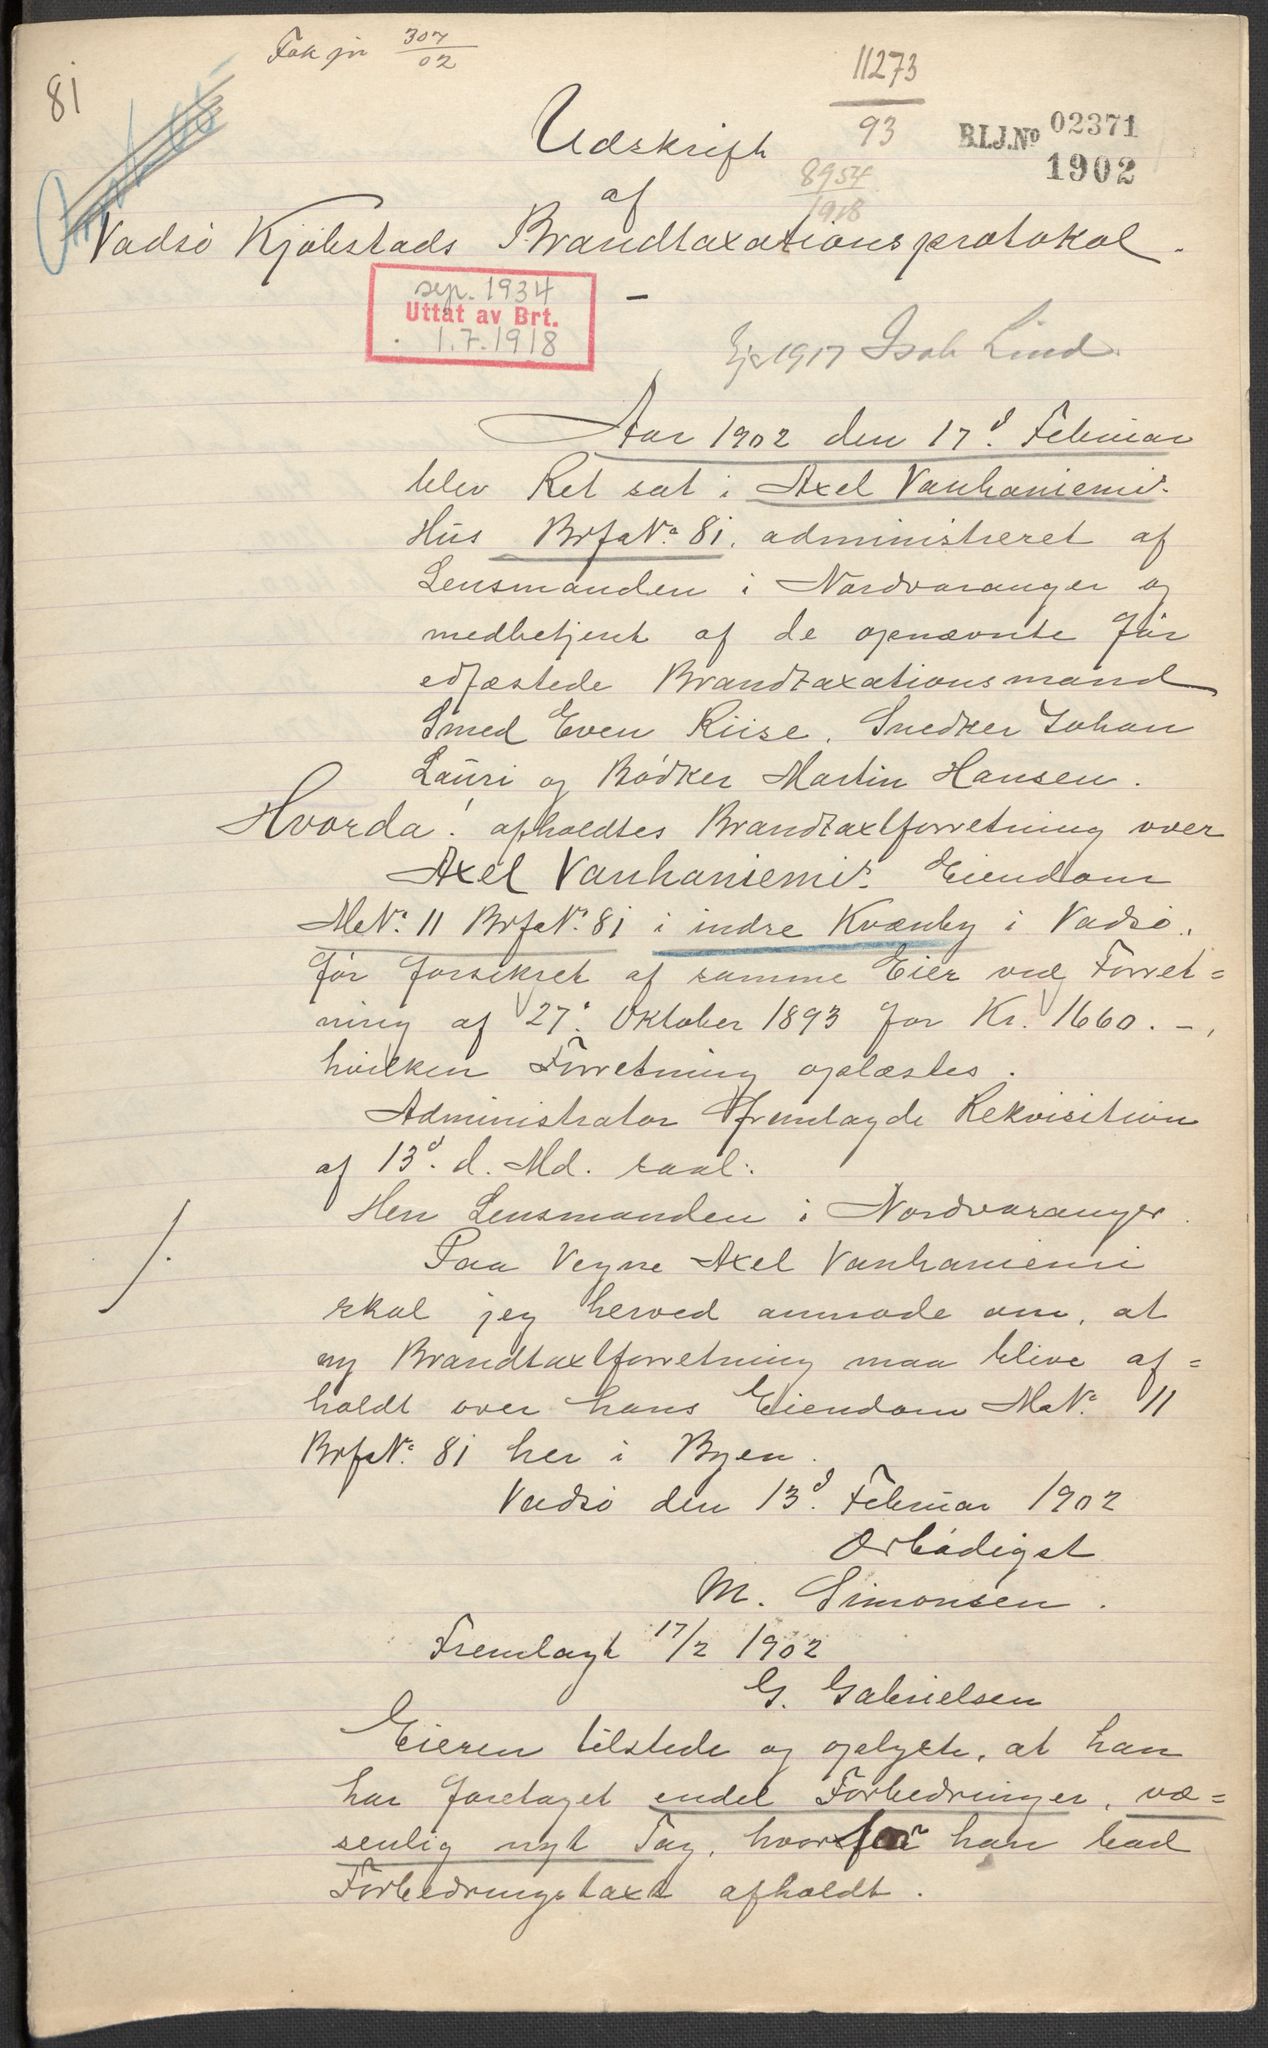 81
307
02
11273
93
B.I.J.No 02371
1902
8954
1918
Udskrift
af
Vadsö Kjöbstads Brandtaxationsprotokol.
sep. 1934
Uttat av Brt.
1.7.1918
1917 Isak Lind
Aar 1902 den 17d. Februar
blev Ret sat i Axel Vanhaniemis
Hus BrfaNo. 81, administreret af
Lensmanden i Nordvaranger og
medbetjent af de opnævnte før
edfæstede Brandtaxationsmænd
Smed Even Riise, Snedker Johan
Lauri og Bødker Martin Hansen.
Hvorda: afholdtes Brandtaxtforretning over
Axel Vanhaniemis Eiendom
MaNo. 11 BrfaNo. 81 i indre Kvænby i Vadsö,
før forsikret af samme Eier ved Forret=
ning af 27d. Oktober 1893 for Kr. 1660.-,
hvilken Forretning oplæstes.
Administrator fremlagde Rekvisition
af 13d. d. Md. saal:
Herr Lensmanden i Nordvaranger.
Paa Vegne Axel Vanhaniemi
skal jeg herved anmode om, at
ny Brandtaxtforretning maa blive af=
holdt over hans Eiendom MaNo. 11
BrfaNo. 81 her i Byen.
Vadsö den 13d. Februar 1902
Ærbødigst
M. Simonsen.
Fremlagt 17/2 1902
G. Gabrielsen
Eieren tilstede og oplyste, at han
har foretaget endel Forbedringer, væ=
senlig nyt Tag, hvorfor han bad
Forbedringstaxt afholdt.